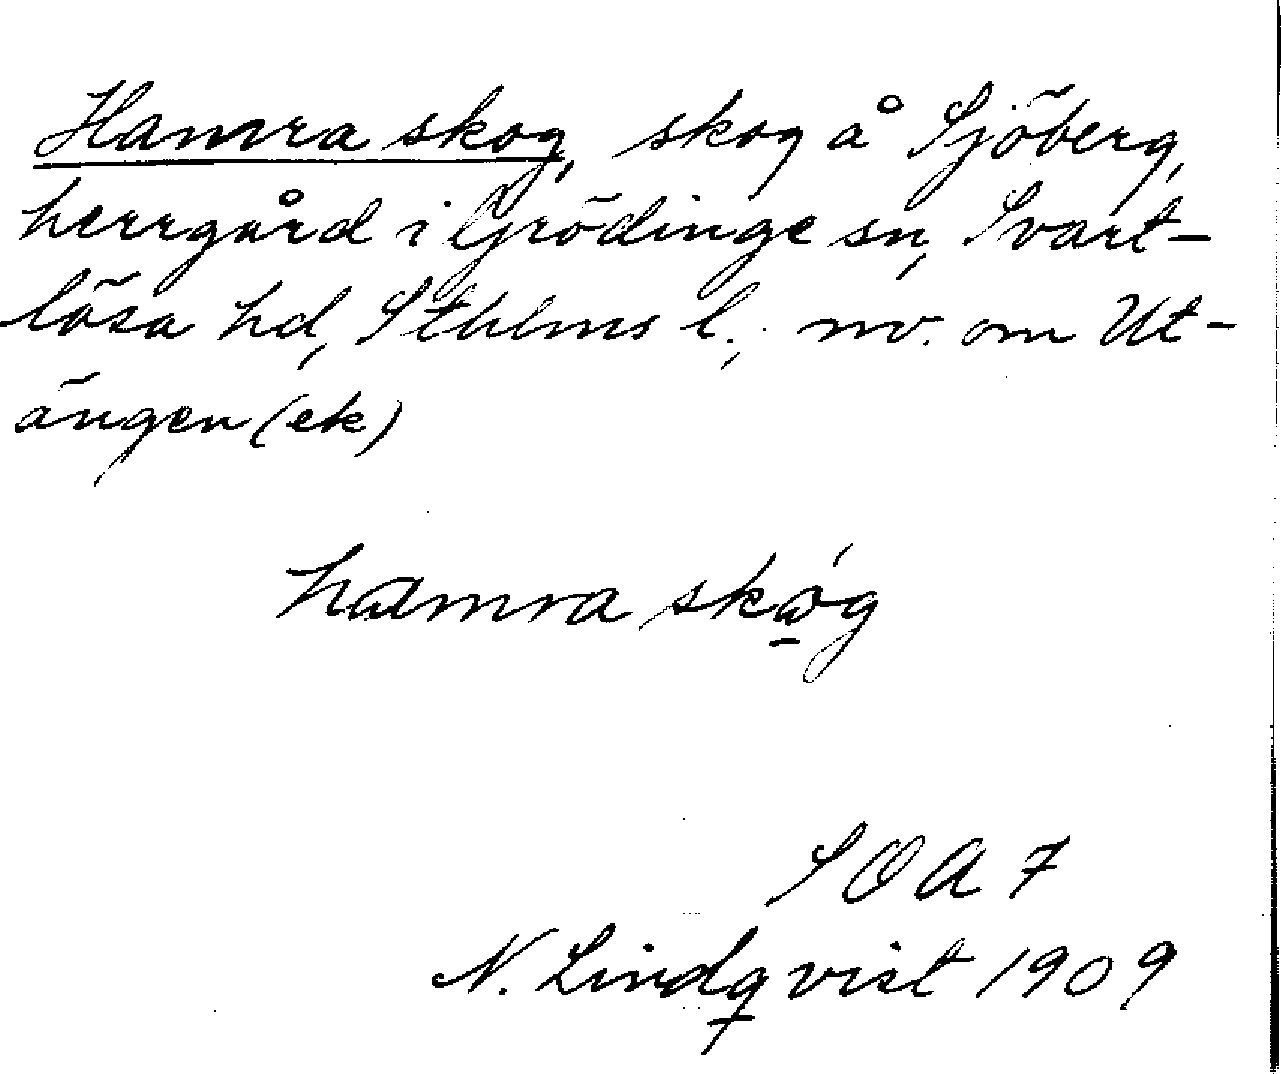 Hamra skog, skog å Sjöberg,
herrgård i Grödinge sn, Svart-
lösa hd, Sthlms l.; nv. om Ut-
ängen (ek)
hamra skǫ́g
SOA 7
N. Lindqvist 1909